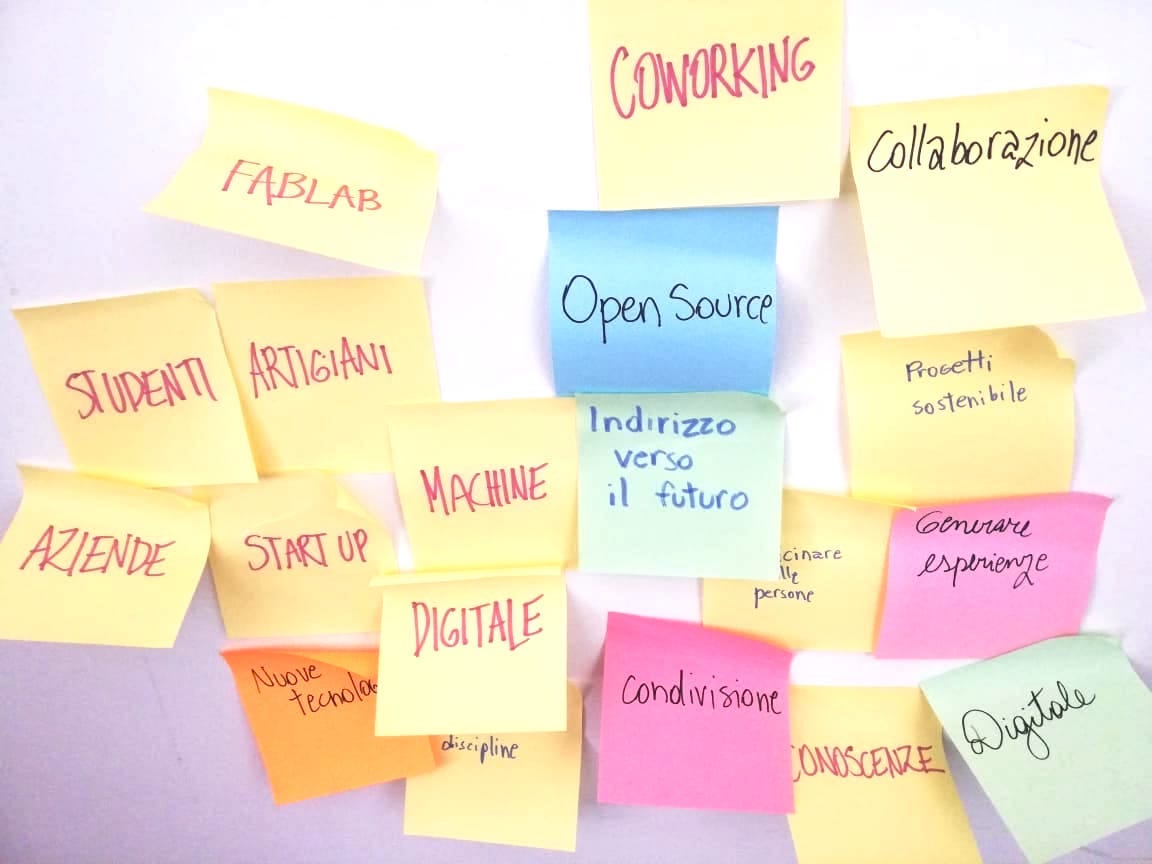 COWORKING
Collaborazione
FABLAB
Open Source
STUDENTI
ARTIGIANI
Progetti
sostenibile
MACHINE
Indirizzo
verso
il futuro
AZIENDE
START UP
cinare
lle
persone
Generare
esperienze
DIGITALE
Nuove
tecnolo
discipline
Condivisione
CONOSCENZE
Digitale